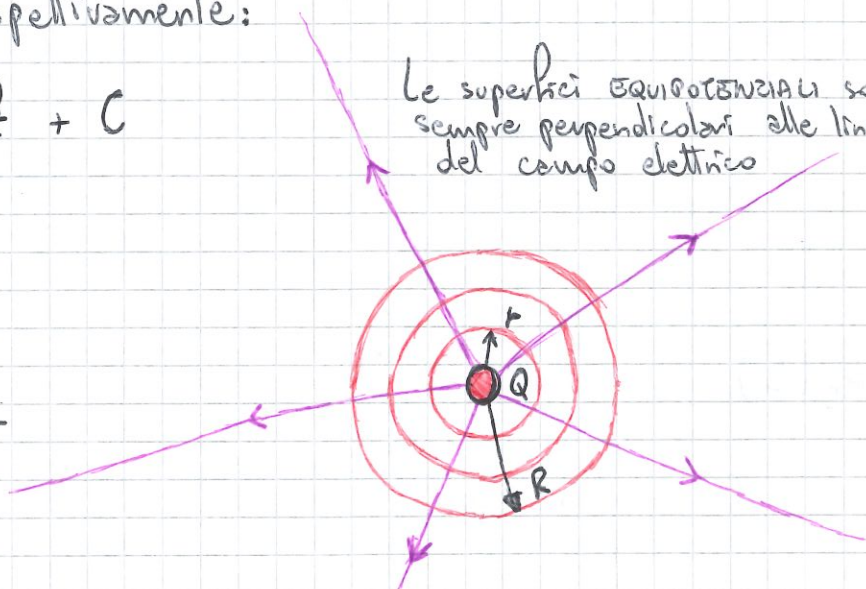 pettivamente:
+ C
Le superfici EQUIPOTENZIALI s
sempre perpendicolari alle lin
del campo elettrico
r
Q
R